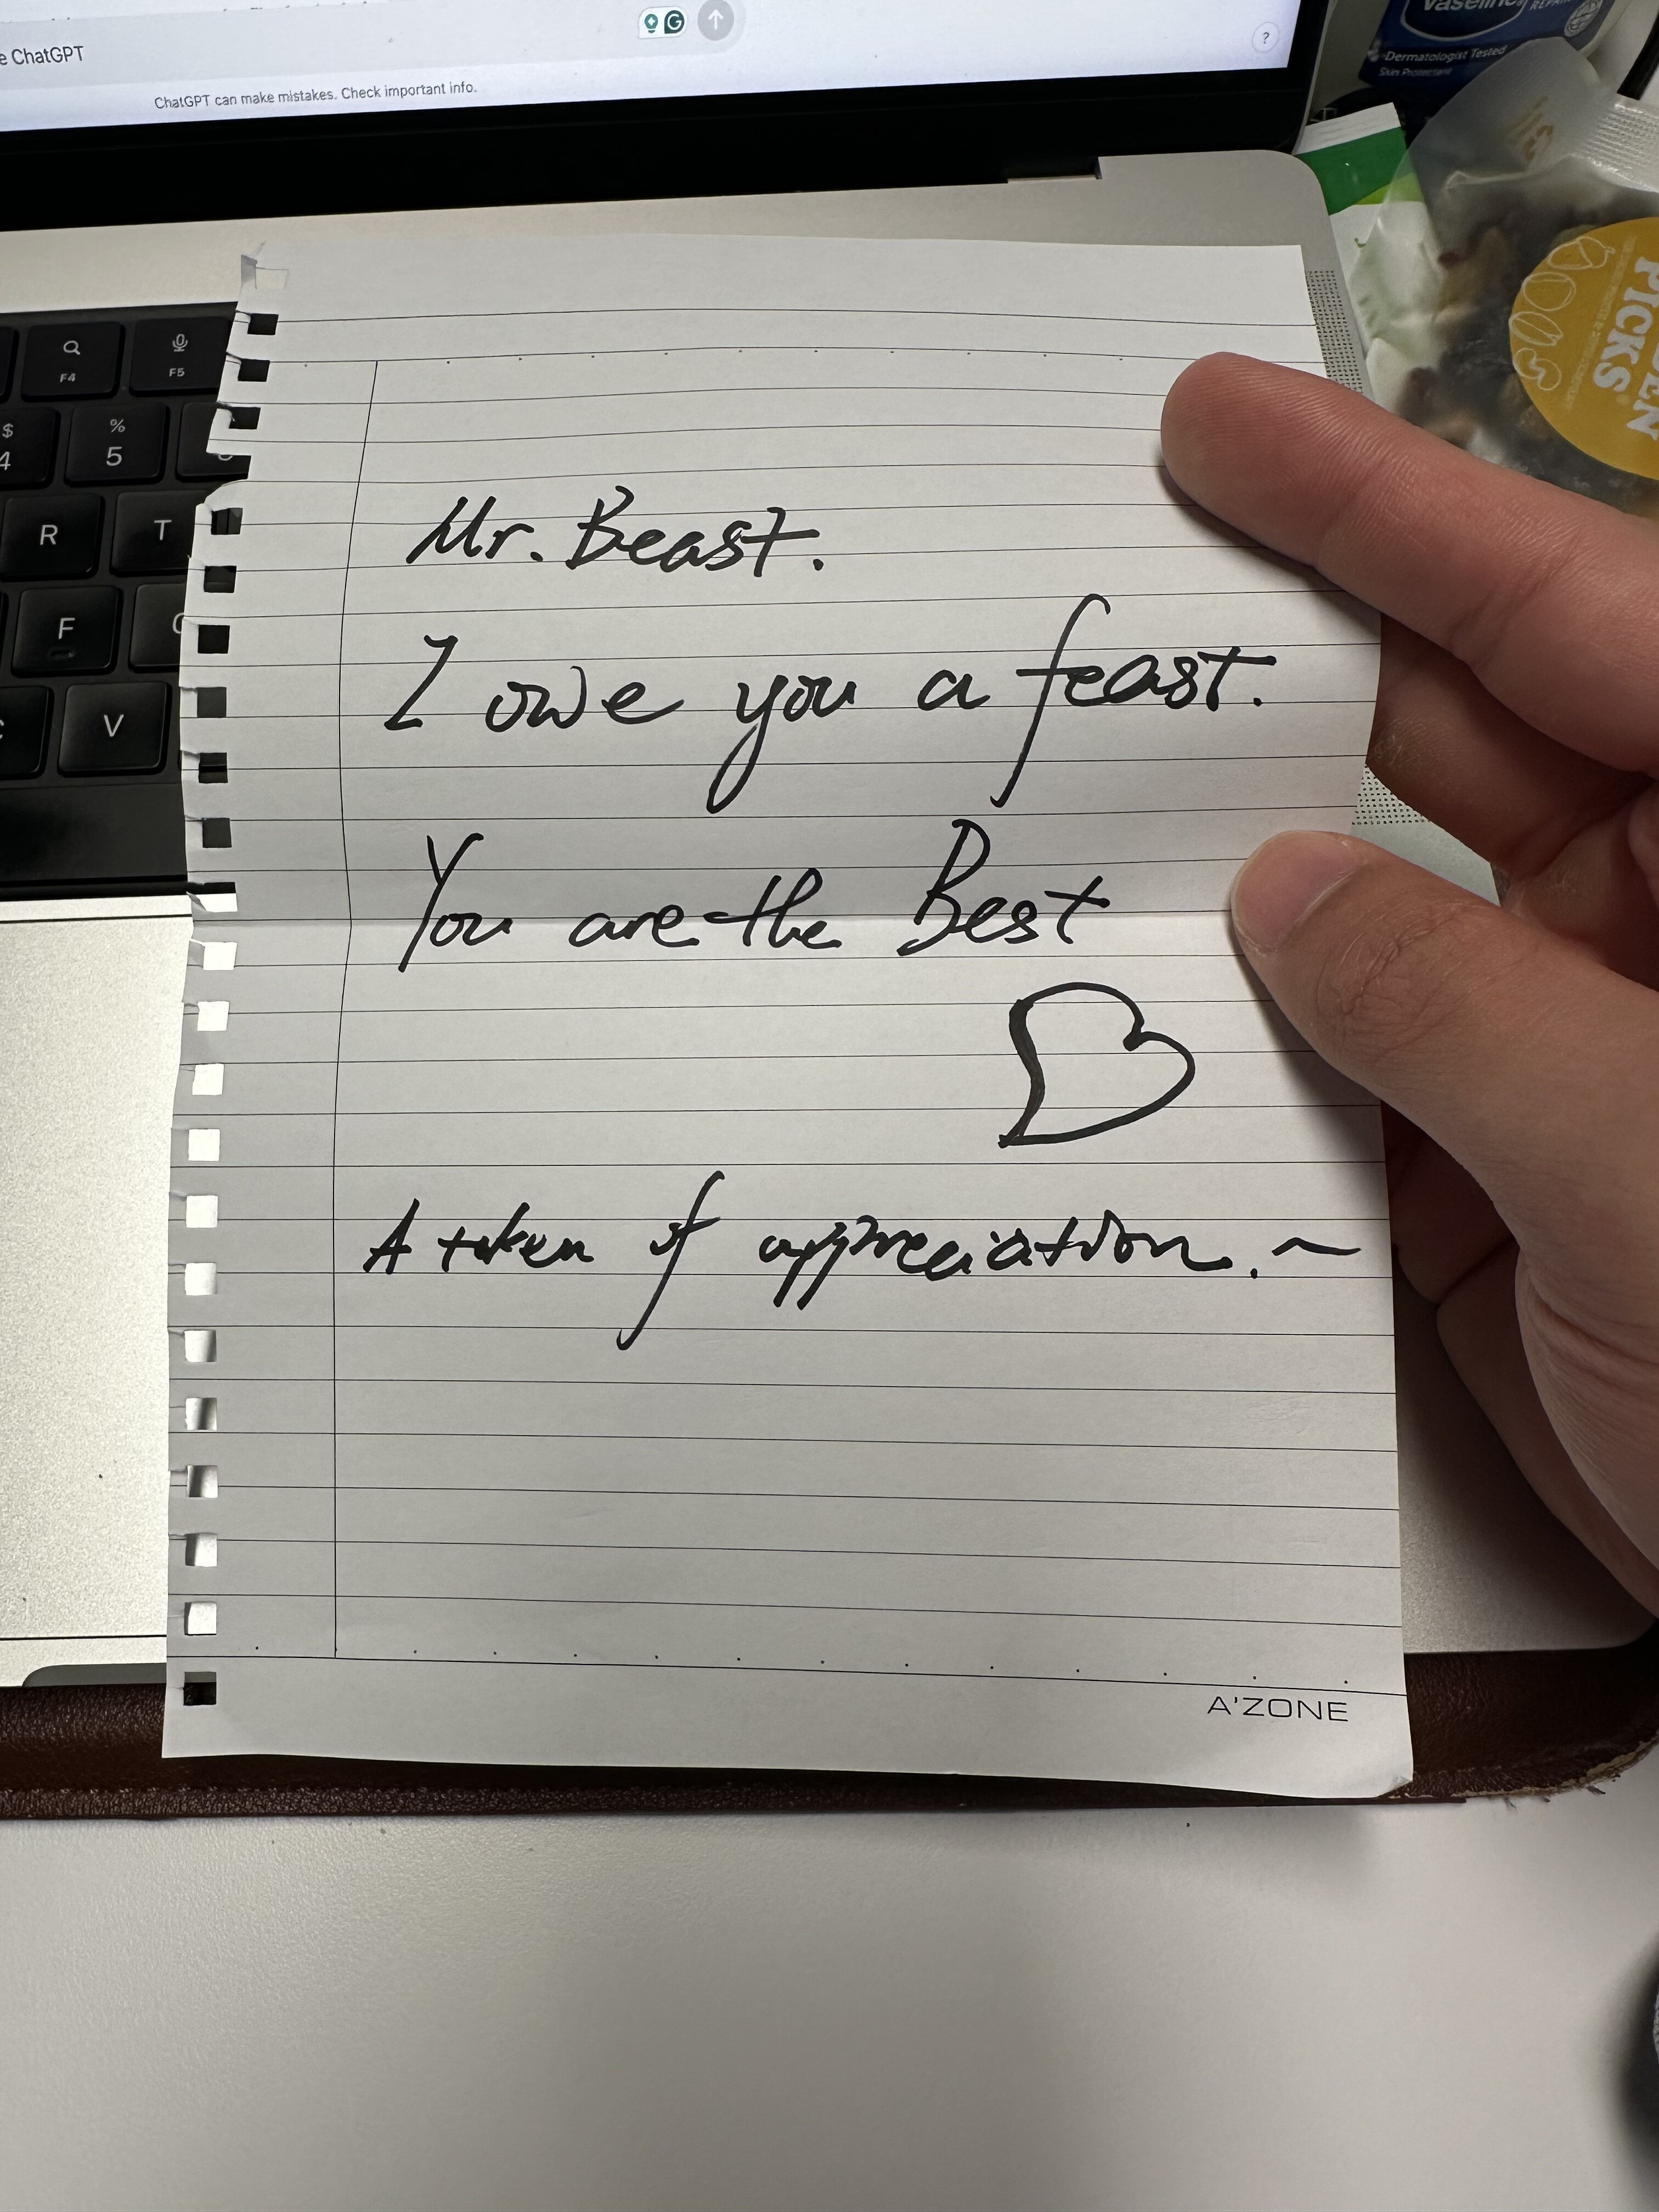 e ChatGPT
ChatGPT can make mistakes. Check important info.
?
Vaseline
REPAI
Dermatologist Tested
Skin Protectant
F4
F5
$
4
%
5
R
T
F
V
DEN
PICKS
Mr. Beast.
I owe you a feast.
You are the Best
A token of appreciation. ~
A'ZONE